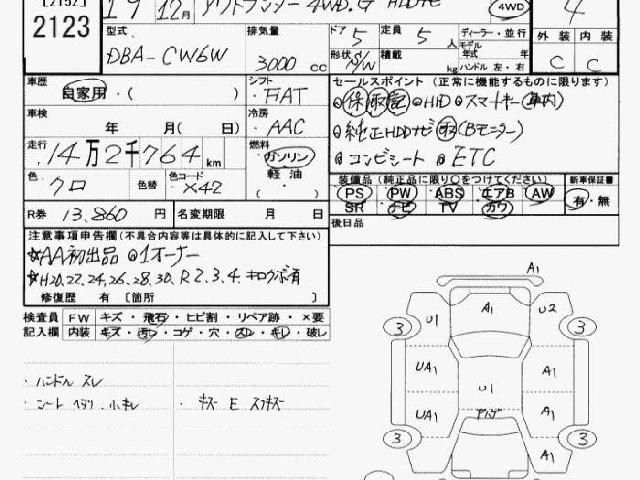 [7157]
2123
19 年 12月 アウトランダー 4WD.G
4WD
4
型式 DBA-CW6W
排気量 3000 cc
ドア 5
定員 5 人
形状 S/W
積載 kg
ディーラー・並行
モデル年式 年
ハンドル 左・右
外装 内装
C C
車歴 自家用・( )
シフト FAT
車検 年 月( 日)
冷房 AAC
走行 14万2千764 km
燃料 ガソリン・軽油・
色 クロ
色替
色コード X42
R券 13,860 円
名変期限 月 日
セールスポイント (正常に機能するものに限ります)
◎保 取 記 ◎HID ◎スマートキー(車内)
◎純正HDDナビ取(Bモニター)
◎コンビシート ◎ETC
装備品(純正品に限り○をつけてください)
新車保証書
PS PW ABS エアB AW
SR ナビ TV カワ
有・無
後日品
注意事項申告欄 (不具合内容等は具体的に記入して下さい)
☆AA初出品 ◎1オーナー
☆H20.22.24.26.28.30. R2.3.4. キロクボ有
修復歴 有 [箇所 ]
検査員 FW キズ・飛石・ヒビ割・リペア跡・×要
記入欄 内装 キズ・汚シ・コゲ・穴・スレ・キレ・破し
・ハンドル スレ
・シート ヘタリ・小キレ
・キズ E スリキズ
A1
U1 A1 U2
3 3
UA1 A1
U1
UA1 A1
3 3
A1